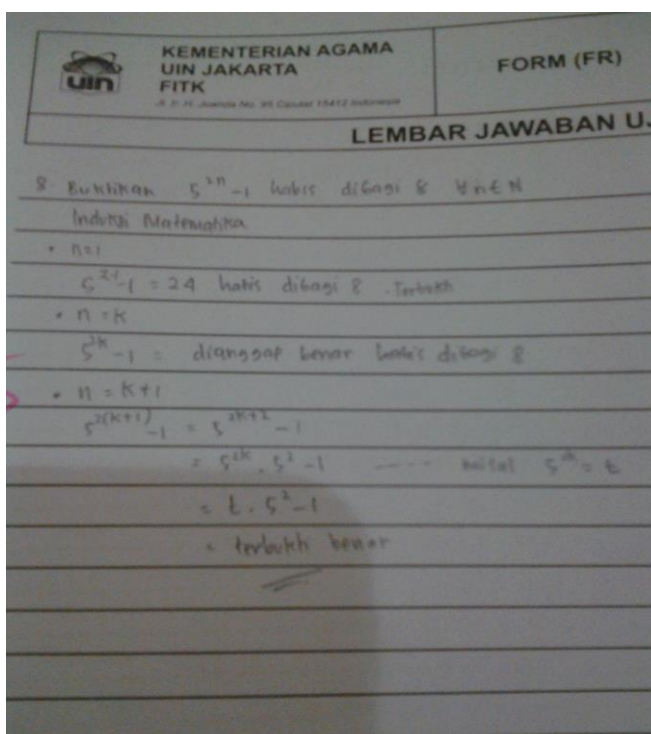 KEMENTERIAN AGAMA
UIN JAKARTA
FITK
Jl. Ir. H. Juanda No. 95 Ciputat 15412 Indonesia
uin
FORM (FR)
LEMBAR JAWABAN U
8. Buktikan 5²ⁿ -1 habis dibagi 8 ∀n∈N
Induksi Matematika
• n=1
5²·¹-1 = 24 habis dibagi 8 . Terbukti
• n = k
5²ᵏ -1 = dianggap benar habis dibagi 8
• n = k+1
5²⁽ᵏ⁺¹⁾-1 = 5²ᵏ⁺² -1
= 5²ᵏ . 5² -1 ---- misal 5²ᵏ = t
= t . 5² -1
= terbukti benar